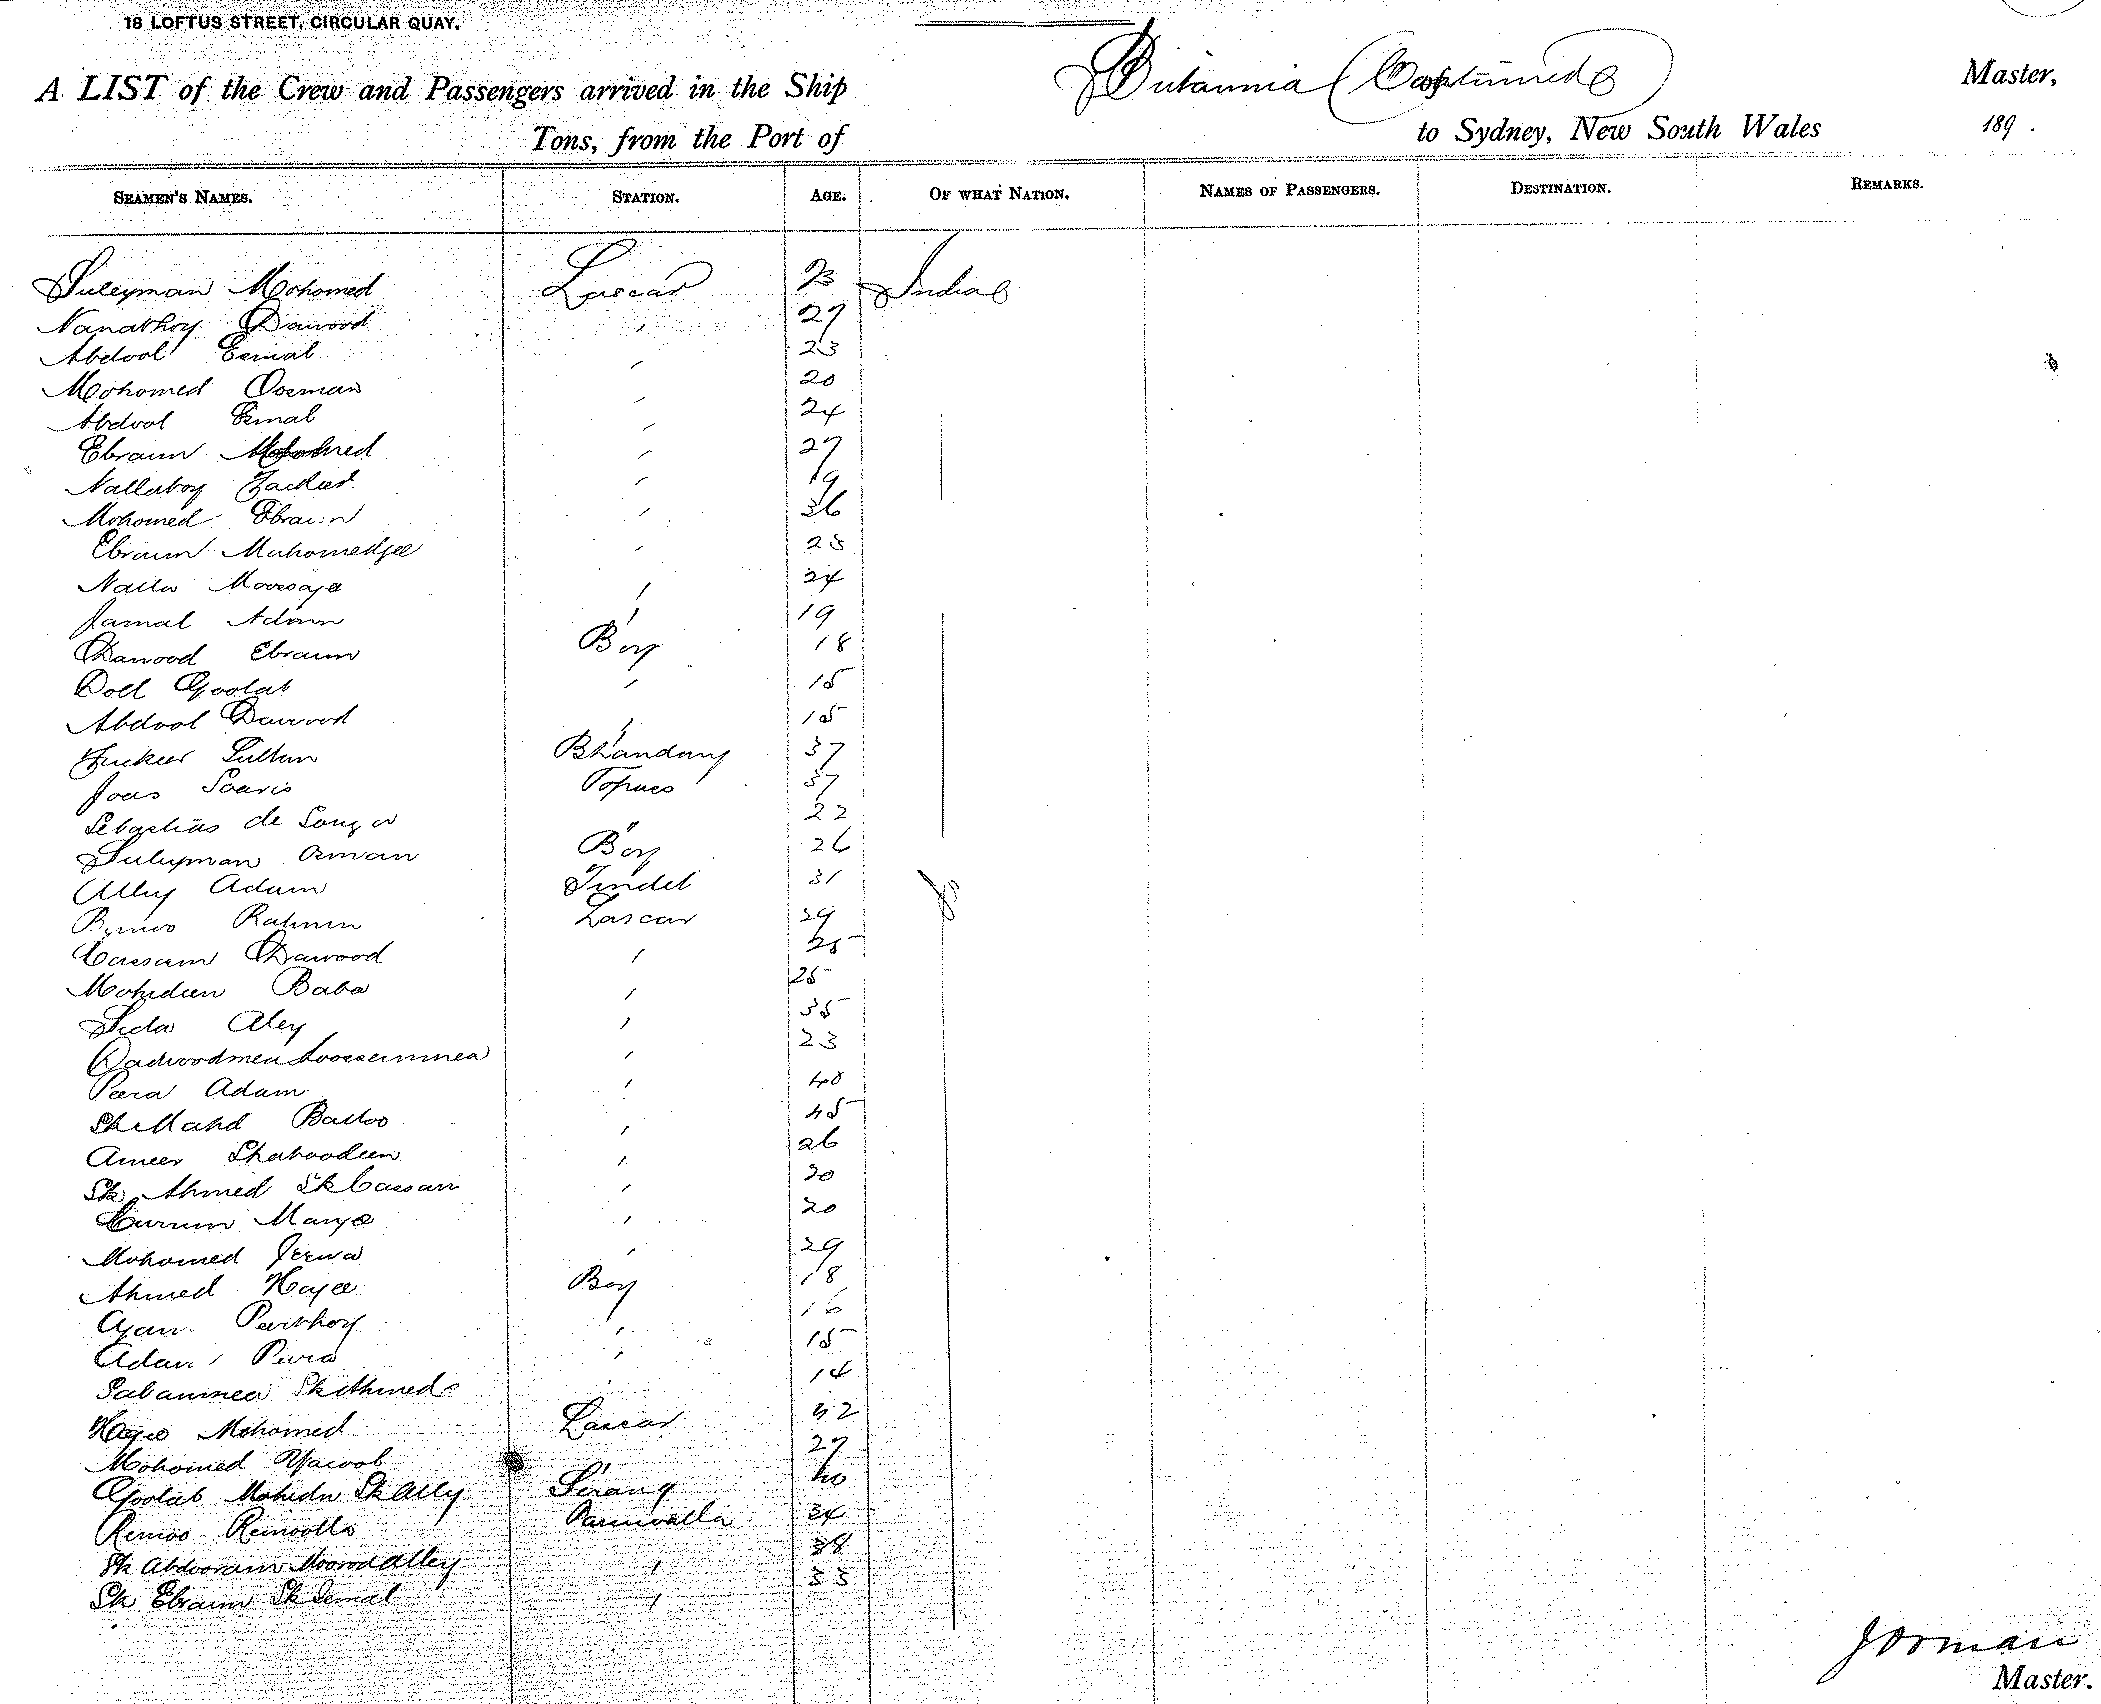 18 LOFTUS STREET, CIRCULAR QUAY.
A LIST of the Crew and Passengers arrived in the Ship Britannia (Continued) Master,
Tons, from the Port of to Sydney, New South Wales 189 .
SEAMEN'S NAMES. STATION. AGE. OF WHAT NATION. NAMES OF PASSENGERS. DESTINATION. REMARKS.
Suleyman Mohomed Lascar 23 India
Nanabhoy Dawood " 27
Abdool Esmal " 23
Mohomed Oosman " 20
Abdool Esmal " 24
Ebraim Mohomed " 27
Nallaboy " 19
Mohomed Ebraim " 36
Ebraim Mahomedjee " 25
Nalla Moosaje " 24
Jamal Adam " 19
Dawood Ebraim Boy 18
Goolab " 15
Abdool Dawood " 15
Fuckeer Sultan Bhandary 37
Soaris Topass 37
de Souza " 22
Suleyman Osman Boy 26
Alley Adam Tindel 31
Rahmin Lascar 29
Cassam Dawood " 25
Mohideen Baba " 25
Aley " 35
" 23
Peera Adam " 40
Balloo " 45
Ameer Shaboodeen " 26
Sk Ahmed Sk Cassam " 20
" 20
Mohomed " 29
Ahmed Hajee Boy 18
" 16
Adam " 15
Sk Ahmed 14
Hajee Mohomed Lascar 42
Mohomed Yacoob " 27
Goolab Mohidn Sk Ally Serang 40
34
Sk " 38
Sk Ebraim Sk " 33
Master.